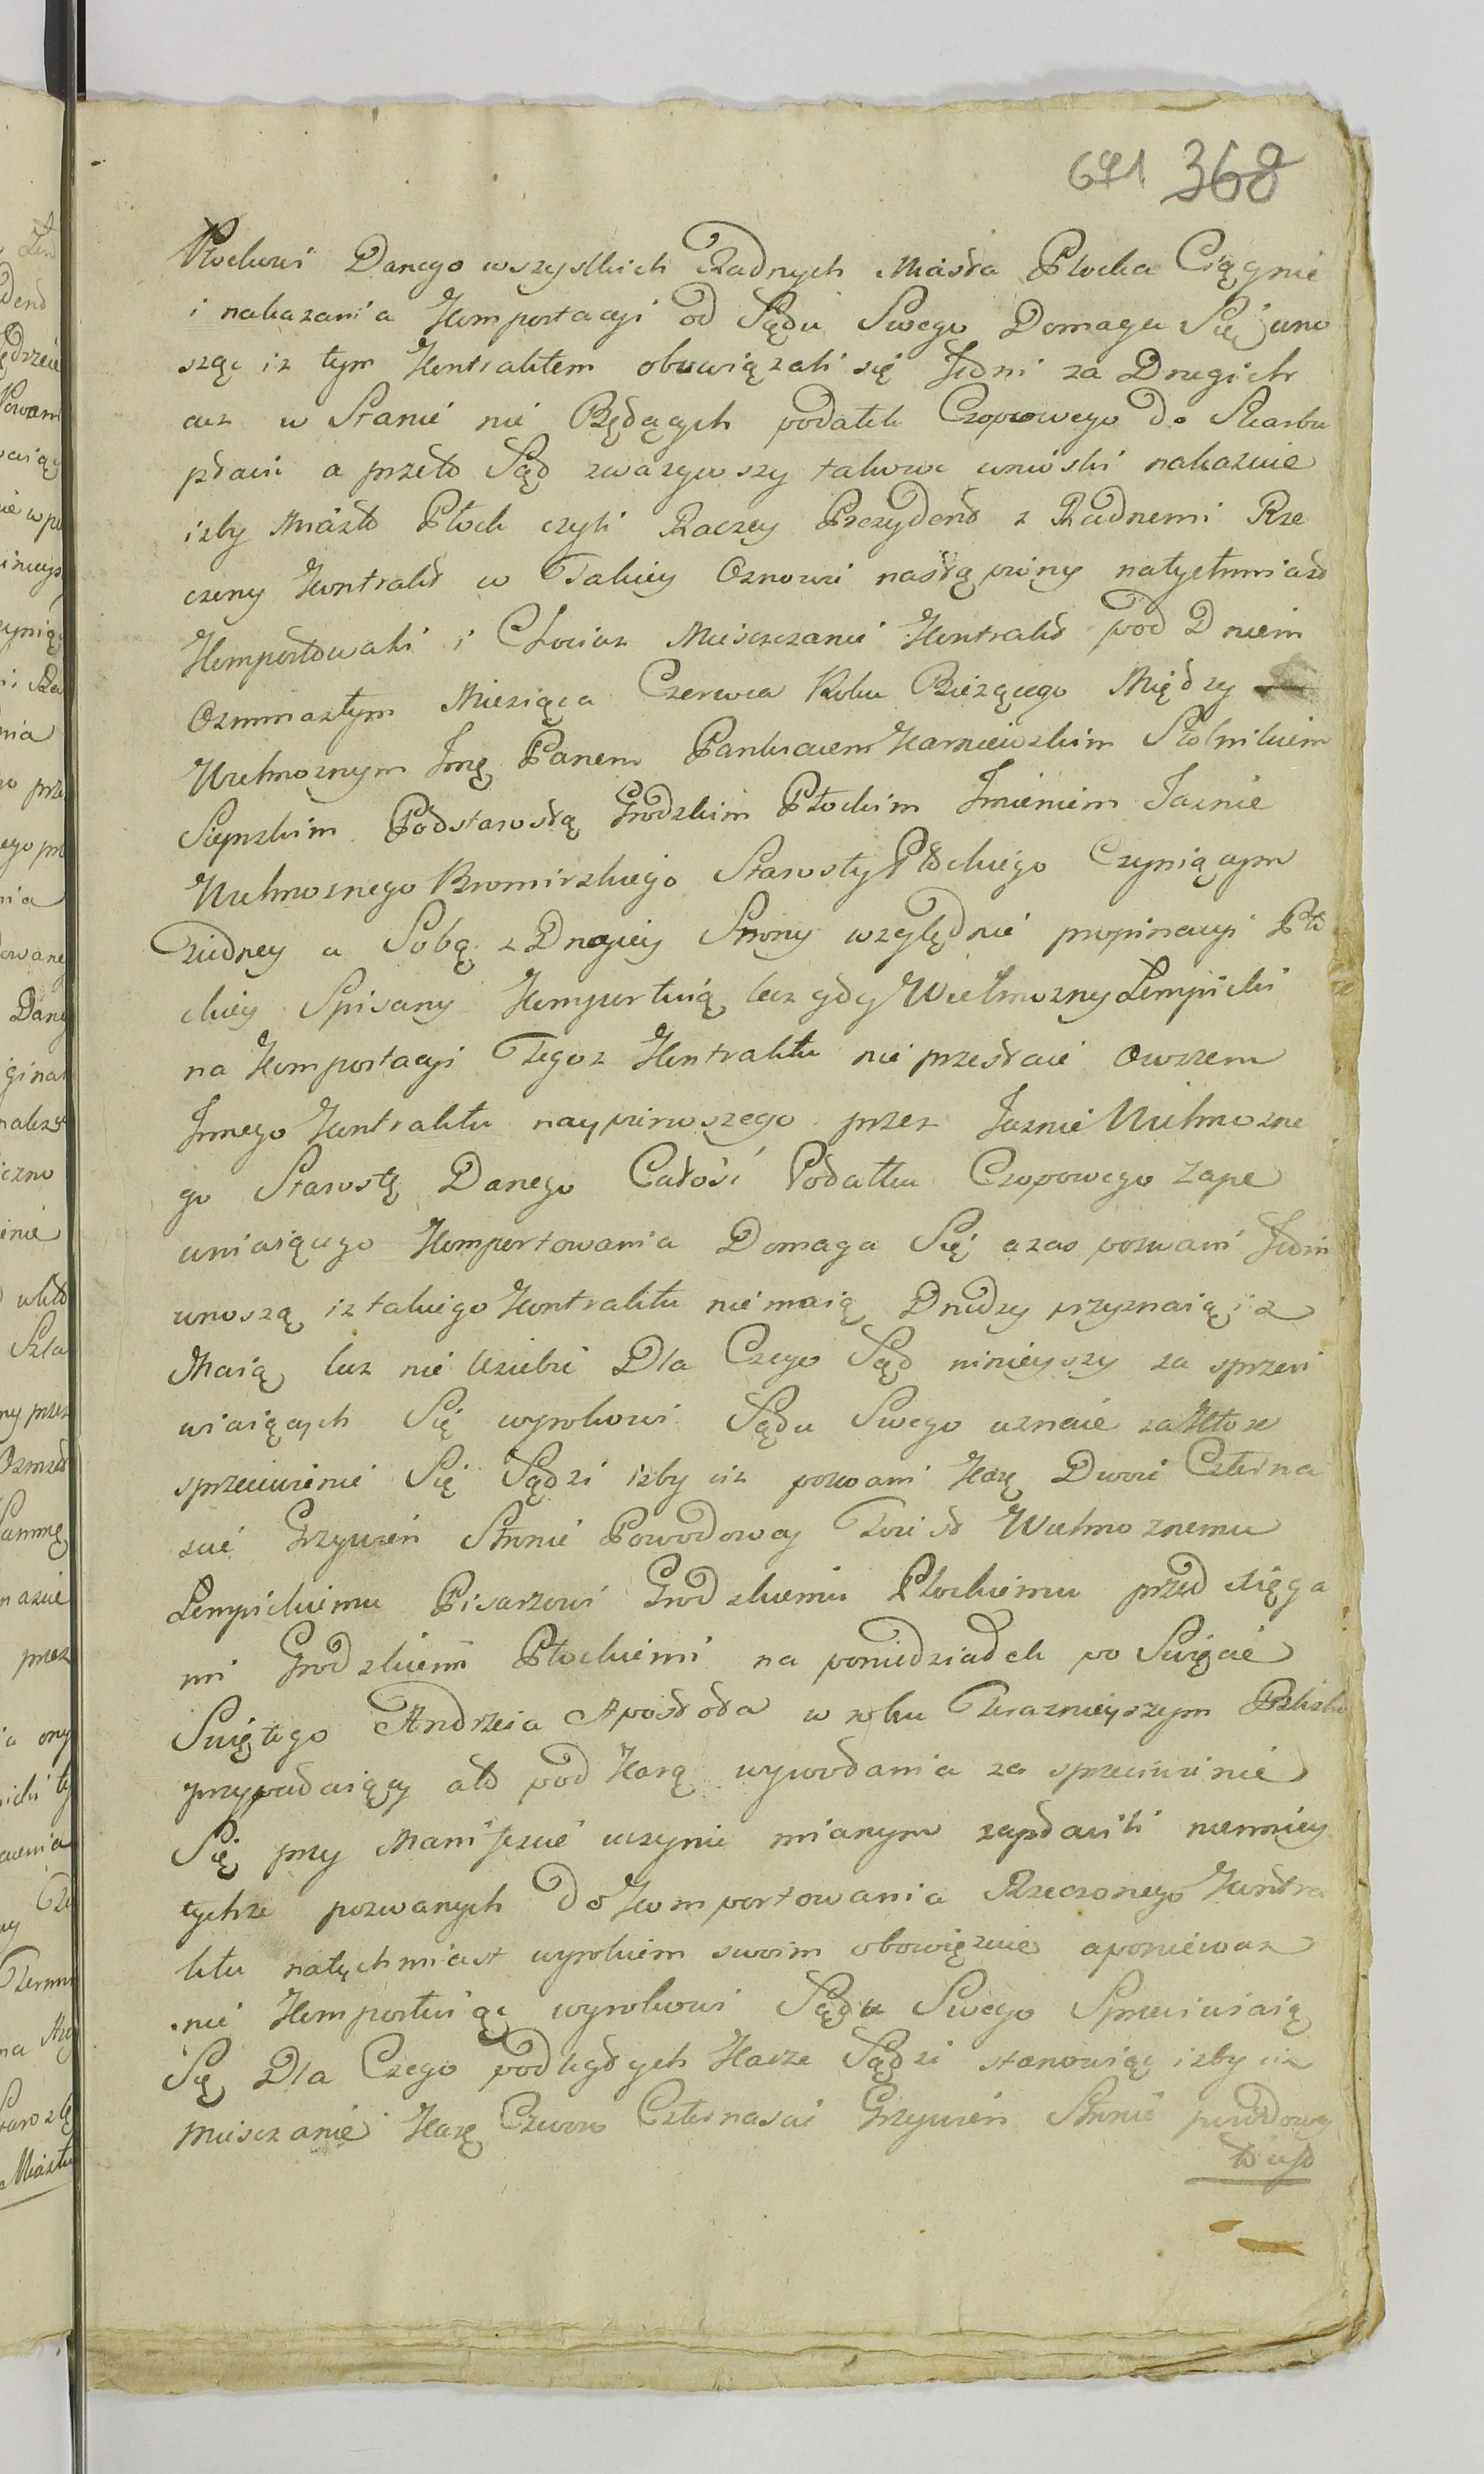 671 368
Płockowi Danego wszystkich Radnych Miasta Płocka Ciągnie
i nakazania Komportacyi od Sądu Swego Domaga Się wno
sząc iz tym Kontraktem obowiązali się Jedni za Drugich
acz w Stanie nie Będących podatek Czopowego do Skarbu
płacić a przeto Sąd zwazywszy takowe wnioski nakazuie
izby Miasto Płock czyli Raczey Prezydent z Radnemi Rze
czony Kontrakt w Takiey Osnowie nastąpiony natychmiast
Komportowali i Chociaz Mieszczanie Kontrakt pod Dniem
Osmnastym Miesiąca Czerwca Roku Biezącego Między
Wielmoznym Jmę Panem Pankracem Karniewskim Stolnikiem
Sierpskim Podstarostą Grodzkim Płockim Imieniem Jasnie
Wielmoznego Bromirskiego Starosty Płockiego Czyniącym
Ziedney a Sobą z Drugiey Strony względnie propinacyi Pło
ckiey Spisany Komportuią lecz gdy Wielmozny Lempicki
na Komportacyi Tegoz Kontraktu nie przestaie Owszem
Innego Kontraktu naypierwszego przez Jasnie Wielmozne
go Starostę Danego Całość Podatku Czopowego zape
wniaiącego Komportowania Domaga Się azas pozwani Jedni
wnoszą iz takiego Kontraktu niemaią Drudzy przyznaią iz
Maią lecz nie Usiebie Dla Czego Sąd ninieyszy za sprzeci
wiaiących Się wyrokowi Sądu Swego uznaie za Które
sprzeciwienie Się Sądzi izby ciz pozwani Karę Dwoie Czterna
scie Grzywien Stronie Powodowey To iest Wielmoznemu
Lempickiemu Pisarzowi Grodzkiemu Płockiemu przed xięga
mi Grodzkiemi Płockiemi na poniedziałek po Swięcie
Swiętego Andrzeia Apostoła w roku Terazniejszym Blisko
przypadaiący ato pod Karą wywołania za sprzeciwienie
Się przy Manifescie uczynie mianym zapłacili niemniey
tychze pozwanych do Komportowania Rzeczonego Kontra
ktu natychmiast wyrokiem swoim obowięzuie aponiewaz
nie Komportuiąc wyrokowi Sądu Swego Sprzeciwiaią
Się Dla Czego podległych Karze Sądzi stanowiąc izby ciz
Mieszczanie Karę Czworo Czternascie Grzywien Stronie powodowey
to iest